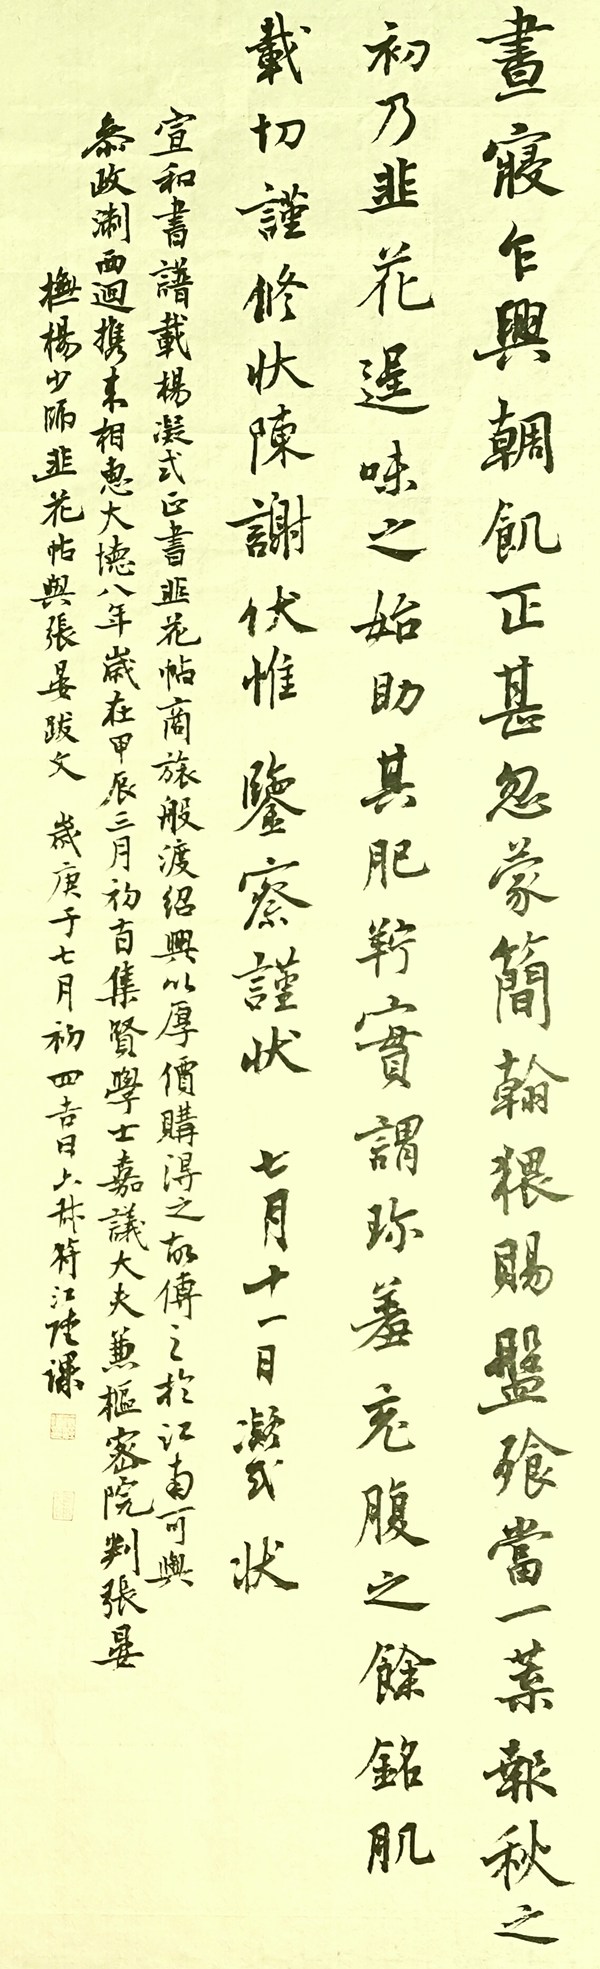 晝寢乍興輖飢正甚忽蒙簡翰猥賜盤飱當一葉報秋之
初乃韭花逞味之始助其肥羜實謂珎羞充腹之餘銘肌
載切謹修狀陳謝伏惟鑒察謹狀 七月十一日凝式狀
宣和書譜載楊凝式正書韭花帖商旅般渡紹興以厚價購得之故傳之於江南可與
參政淛西迴携来相惠大德八年歲在甲辰三月初吉集賢學士嘉議大夫兼樞密院判張晏
撫楊少師韭花帖與張晏跋文 歲庚子七月初四吉日